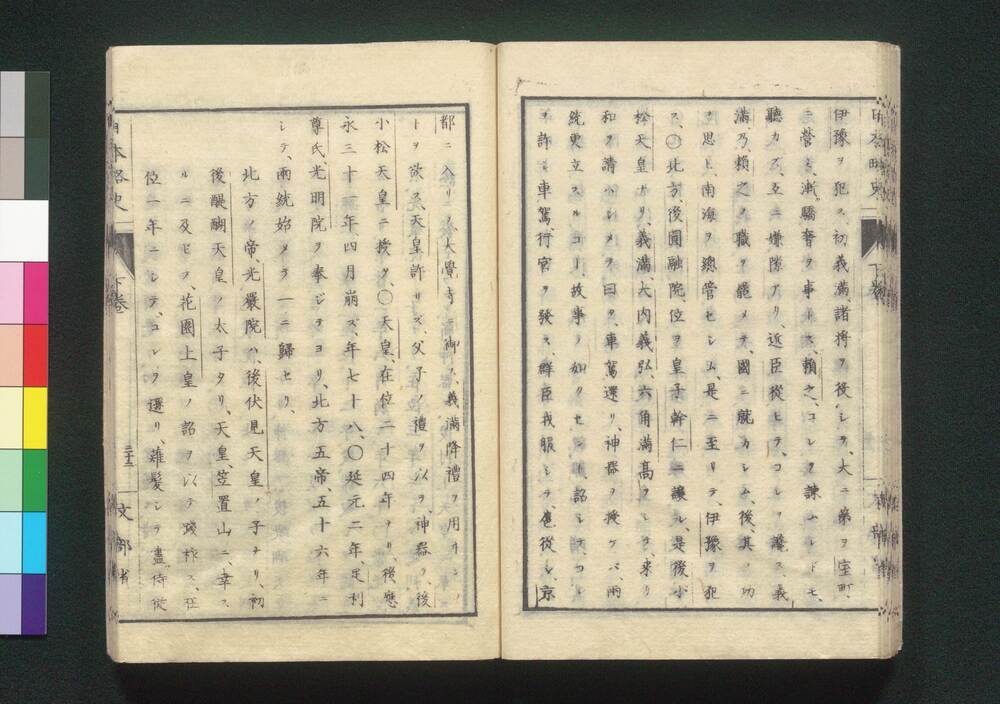 伊豫ヲ犯ス、初義滿、諸將ヲ役シテ、大ニ第ヲ室町
ニ營ミ、漸驕奢ヲ事トス、賴之、コレヲ諫ムレドモ、
聽カズ、互ニ嫌隙アリ、近臣從ヒテ、コレヲ讒ス、義
滿、乃、賴之ノ職ヲ罷メテ、國ニ就カシム、後、其ノ功
ヲ思ヒ、南海ヲ總管セシム、是ニ至リテ、伊豫ヲ犯
ス、〇北方、後圓融院位ヲ皇子幹仁ニ讓ル、是後小
松天皇ナリ、義滿、大內義弘、六角滿高ヲシテ、來リ
和ヲ請ハシメテ曰ク、車駕還リ、神器ヲ授ケバ、兩
統更立スルコト、故事ノ如クセント、詔シテ、コレ
ヲ許シ、車駕、行宮ヲ發ス、群臣戎服シテ、扈從シ、京
都ニ入リテ、大覺寺ニ御ス、義滿降禮ヲ用井ン
トヲ欲ス、天皇許サズ、父子ノ禮ヲ以テ、神器ヲ、後
小松天皇ニ授ク、〇天皇、在位二十四年ナリ、後應
永三十一年、四月崩ズ、年七十八、〇延元二年、足利
尊氏、光明院ヲ奉ジテヨリ、北方五帝、五十六年ニ
シテ、兩統始メテ一ニ歸セリ、
北方ノ帝、光嚴院ハ、後伏見天皇ノ子ナリ、初
後醍醐天皇ノ太子タリ、天皇、笠置山ニ、幸ス
ルニ及ビテ、花園上皇ノ詔ヲ以テ踐祚ス、在
位一年ニシテ、コレヲ遜リ、薙髮シテ盡、侍從
日本略史
下卷
三十二
文部省